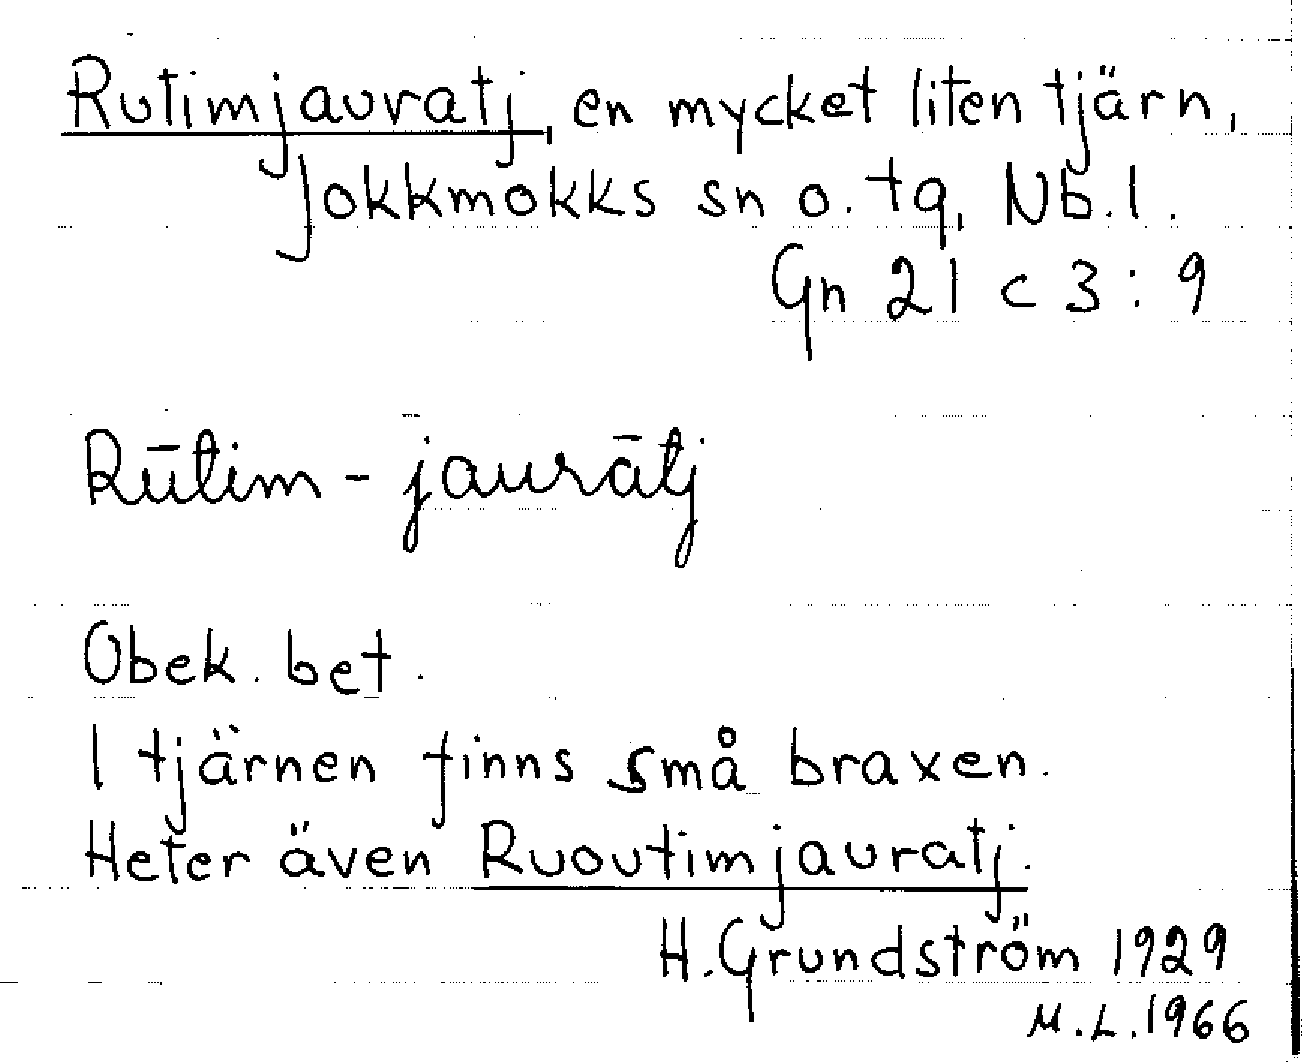 Rutimjauratj, en mycket liten tjärn,
Jokkmokks sn o. tg, Nb.l.
Gn 21 c 3:9
Rūtim-jaurātj
Obek. bet.
I tjärnen finns små braxen.
Heter även Ruoutimjauratj.
H. Grundström 1929
M.L. 1966